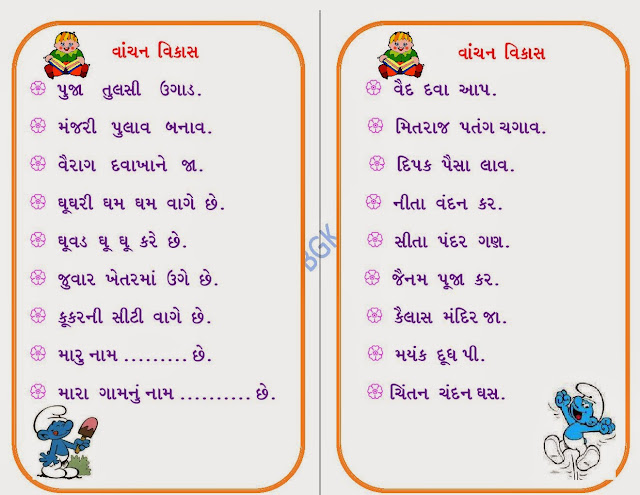 વાંચન વિકાસ
પુજા તુલસી ઉગાડ.
મંજરી પુલાવ બનાવ.
વૈરાગ દવાખાને જા.
ઘૂઘરી ઘમ ઘમ વાગે છે.
ઘૂવડ ઘૂ ઘૂ કરે છે.
જુવાર ખેતરમાં ઉગે છે.
કૂકરની સીટી વાગે છે.
મારુ નામ ......... છે.
મારા ગામનું નામ .......... છે.
BGK
વાંચન વિકાસ
વૈદ દવા આપ.
મિતરાજ પતંગ ચગાવ.
દિપક પૈસા લાવ.
નીતા વંદન કર.
સીતા પંદર ગણ.
જૈનમ પૂજા કર.
કૈલાસ મંદિર જા.
મયંક દૂધ પી.
ચિંતન ચંદન ઘસ.